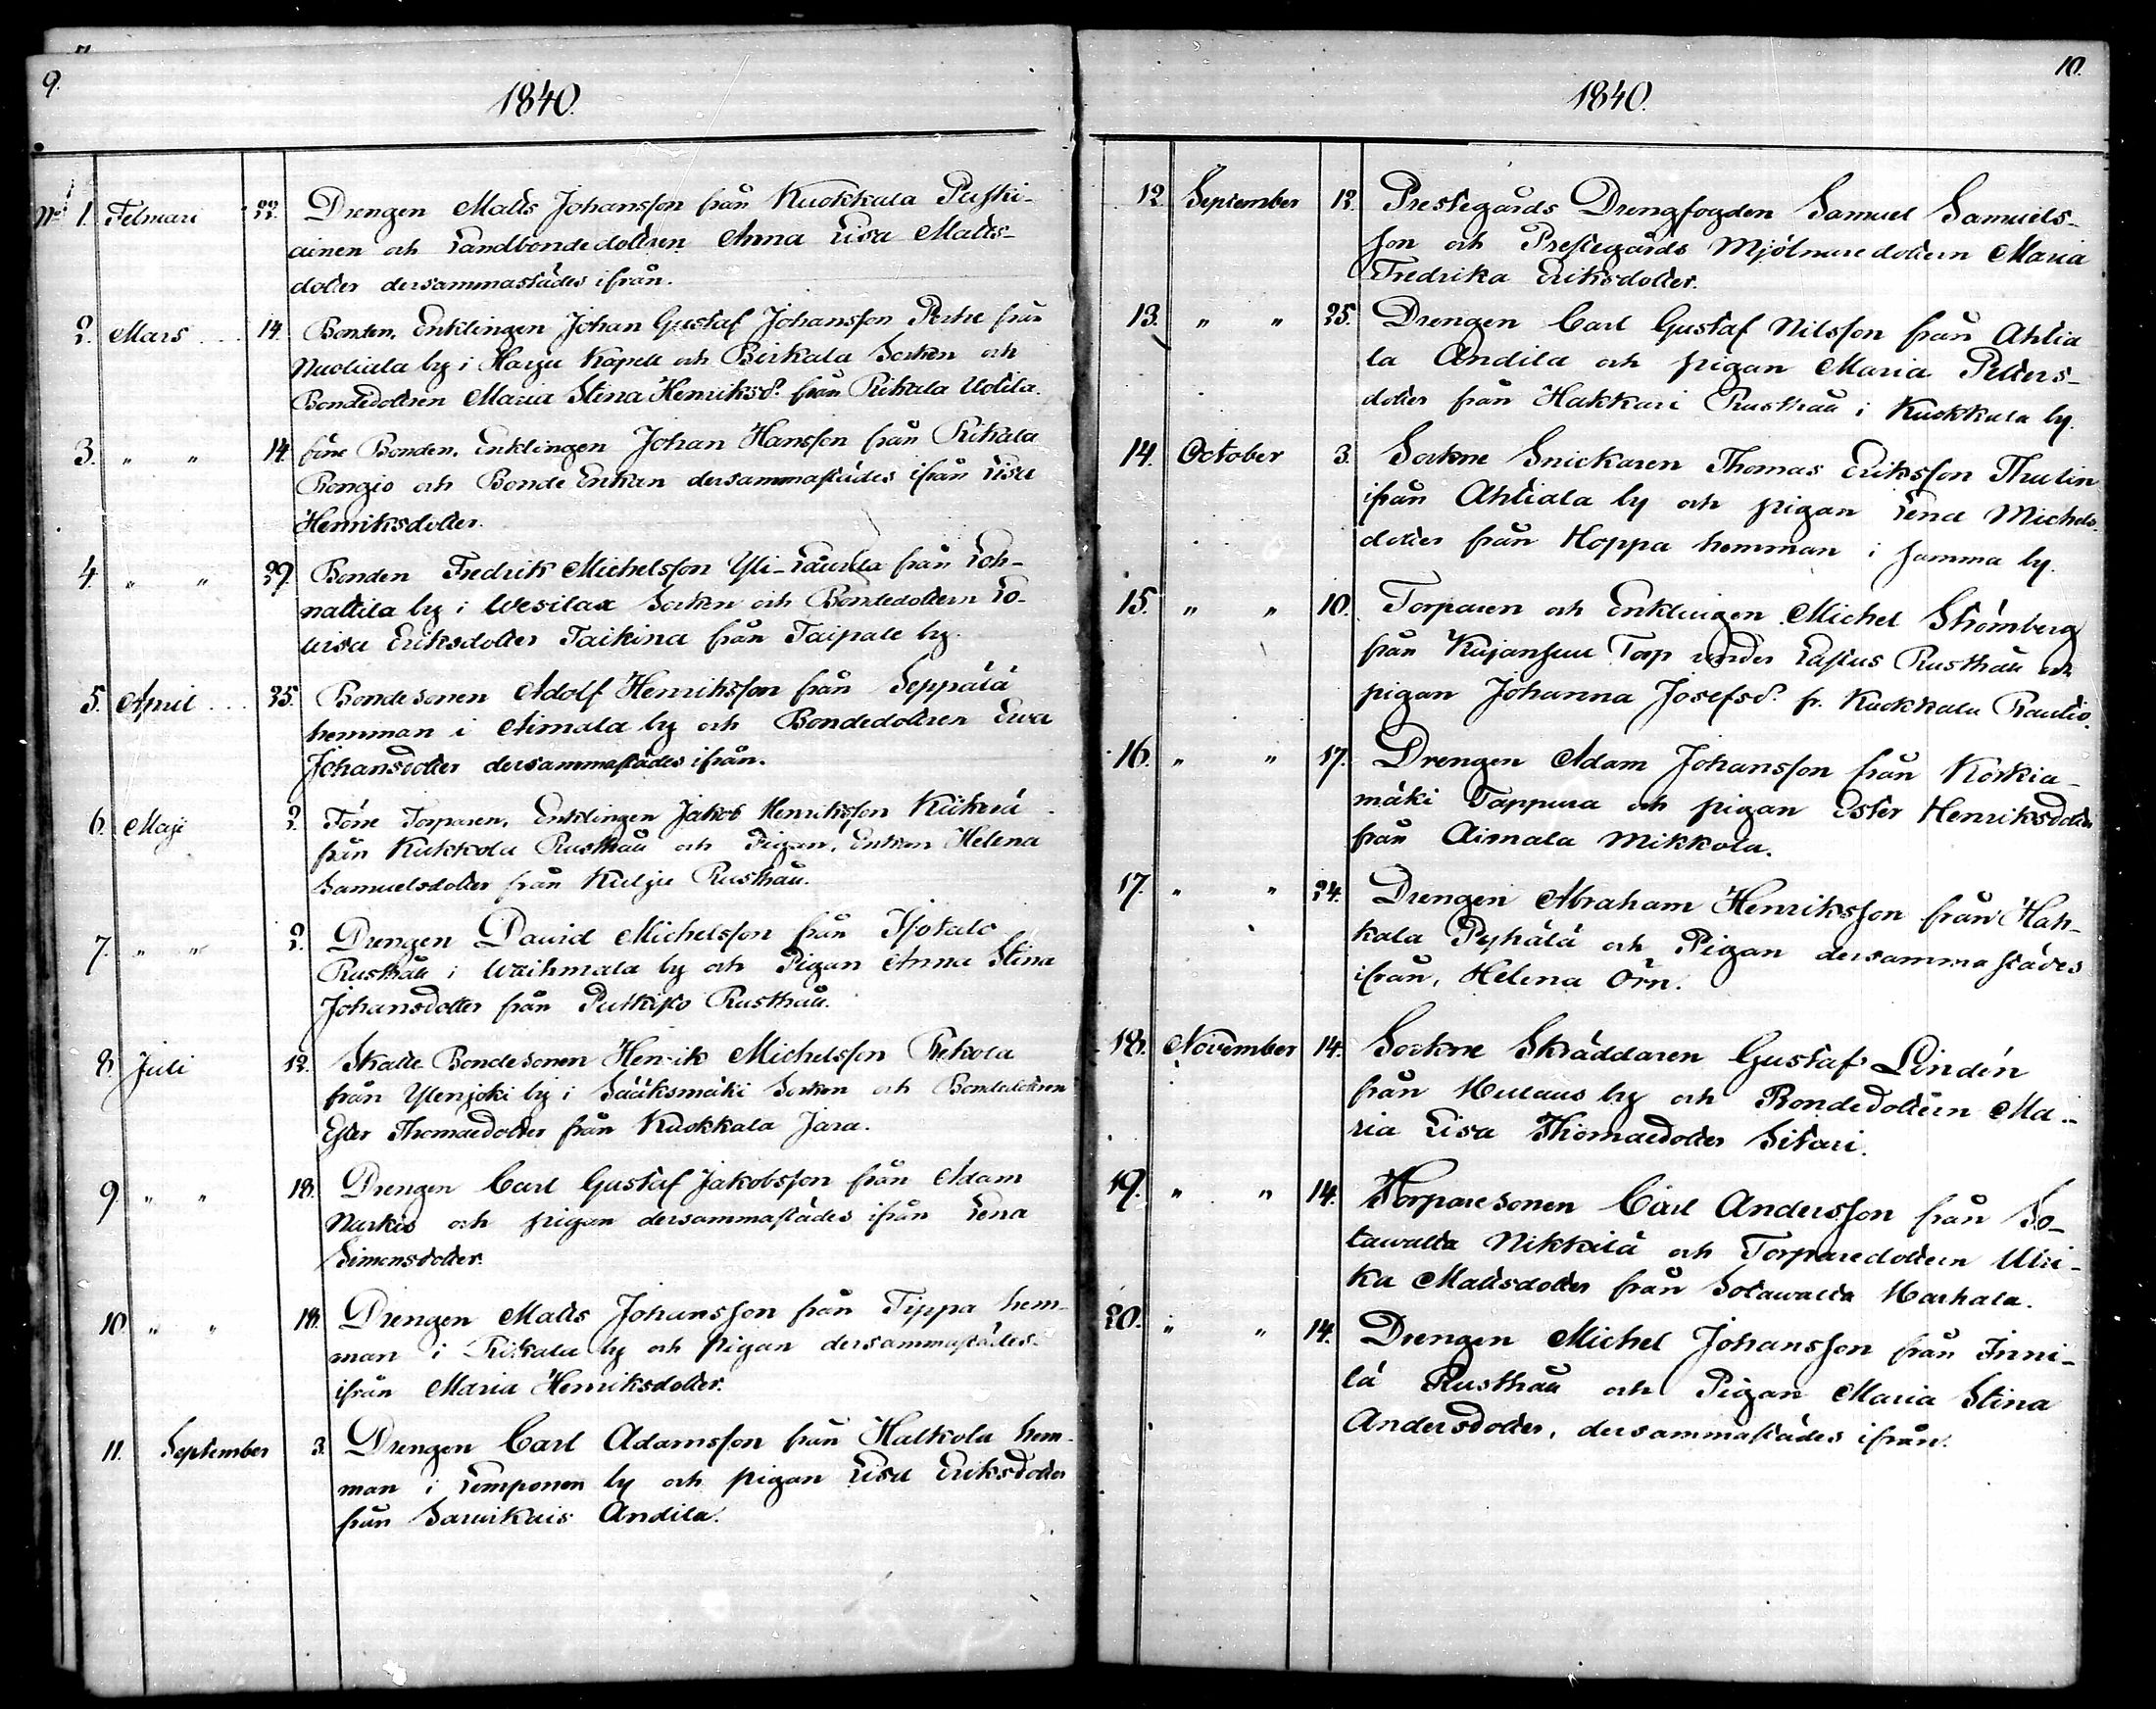 9.
1840.
No 1. Februari 22. Drengen Matts Johansson från Kuokkala Puski-
ainen och Landbondedottren Anna Lisa Matts-
dotter dersammastädes ifrån.
2. Mars 14. Bonden, Enklingen Johan Gustaf Johansson Perhe från
Nuoliala by i Harju Kapell och Birkala Socken och
Bondedottren Maria Stina Henriksd. från Rikala Uotila.
3. " " 14. förre Bonden, Enklingen Johan Hansson från Rikala
Rongio och Bonde Enkan dersammastädes ifrån Lisa
Henriksdotter.
4. " " 29. Bonden Fredrik Michelsson Yli-Laurila från Toh-
nattila by i Wesilax Socken och Bondedottern Lo-
wisa Eriksdotter Taikina från Taipale by.
5. April 25. Bondesonen Adolf Henriksson från Seppälä
hemman i Aimala by och Bondedottren Ewa
Johansdotter dersammastädes ifrån.
6. Maji 2. Förre Torparen, Enklingen Jakob Henriksson
från Kukkola Rusthåll och Pigan, Enkan Helena
Samuelsdotter från Kulju Rusthåll.
7. " " 2. Drengen David Michelsson från Isotalo
Rusthåll i Waihmala by och Pigan Anna Stina
Johansdotter från Rusthåll.
8. Juli 12. Skatte Bondesonen Henrik Michelsson Rekola
från Ylenjoki by i Sääksmäki Socken och Bondedottren
Ester Thomaedotter från Kuokkala Jara.
9. " " 18. Drengen Carl Gustaf Jakobsson från Adam
Narkio och pigan dersammastädes ifrån Lena
Simonsdotter.
10. " " 18. Drengen Matts Johansson från Tippa hem-
man i Rikala by och pigan dersammastädes
ifrån Maria Henriksdotter.
11. September 3. Drengen Carl Adamsson från Halkola hem-
man i Lemponen by och pigan Lisa Eriksdotter
från Sarwikais Andila.
10.
1840.
12. September 12. Prestegårds Drengfogden Samuel Samuels-
son och Prestegårds Mjölnaredottern Maria
Fredrika Eriksdotter.
13. " " 25. Drengen Carl Gustaf Nilsson från Ahtia
la Andila och pigan Maria Petters-
dotter från Hakkari Rusthåll i Kuokkala by.
14. October 3. Sockne Snickaren Thomas Eriksson Thulin
ifrån Ahtiala by och pigan Lena Michels-
dotter från Hoppa hemman i samma by.
15. " " 10. Torparen och Enklingen Michel Strömberg
från Kujansuu Torp under Lastus Rusthåll och
pigan Johanna Josefsd. fr. Kuokkala Rautio.
16. " " 17. Drengen Adam Johansson från Korkia-
mäki Tappura och pigan Ester Henriksdotter
från Aimala Mikkola.
17. " " 24. Drengen Abraham Henriksson från Hah-
kala Pyhälä och Pigan dersammastädes
ifrån, Helena Örn.
18. November 14. Sockne Skräddaren Gustaf Lindén
från Hulaus by och Bondedottern Ma-
ria Lisa Thomaedotter Sitari.
19. " " 14. Torparesonen Carl Andersson från So-
tawalta Nikkilä och Torparedottern Ulri-
ka Mattsdotter från Sotawalta Marhala.
20. " " 14. Drengen Michel Johansson från Inni-
lä Rusthåll och Pigan Maria Stina
Andersdotter, dersammastädes ifrån.